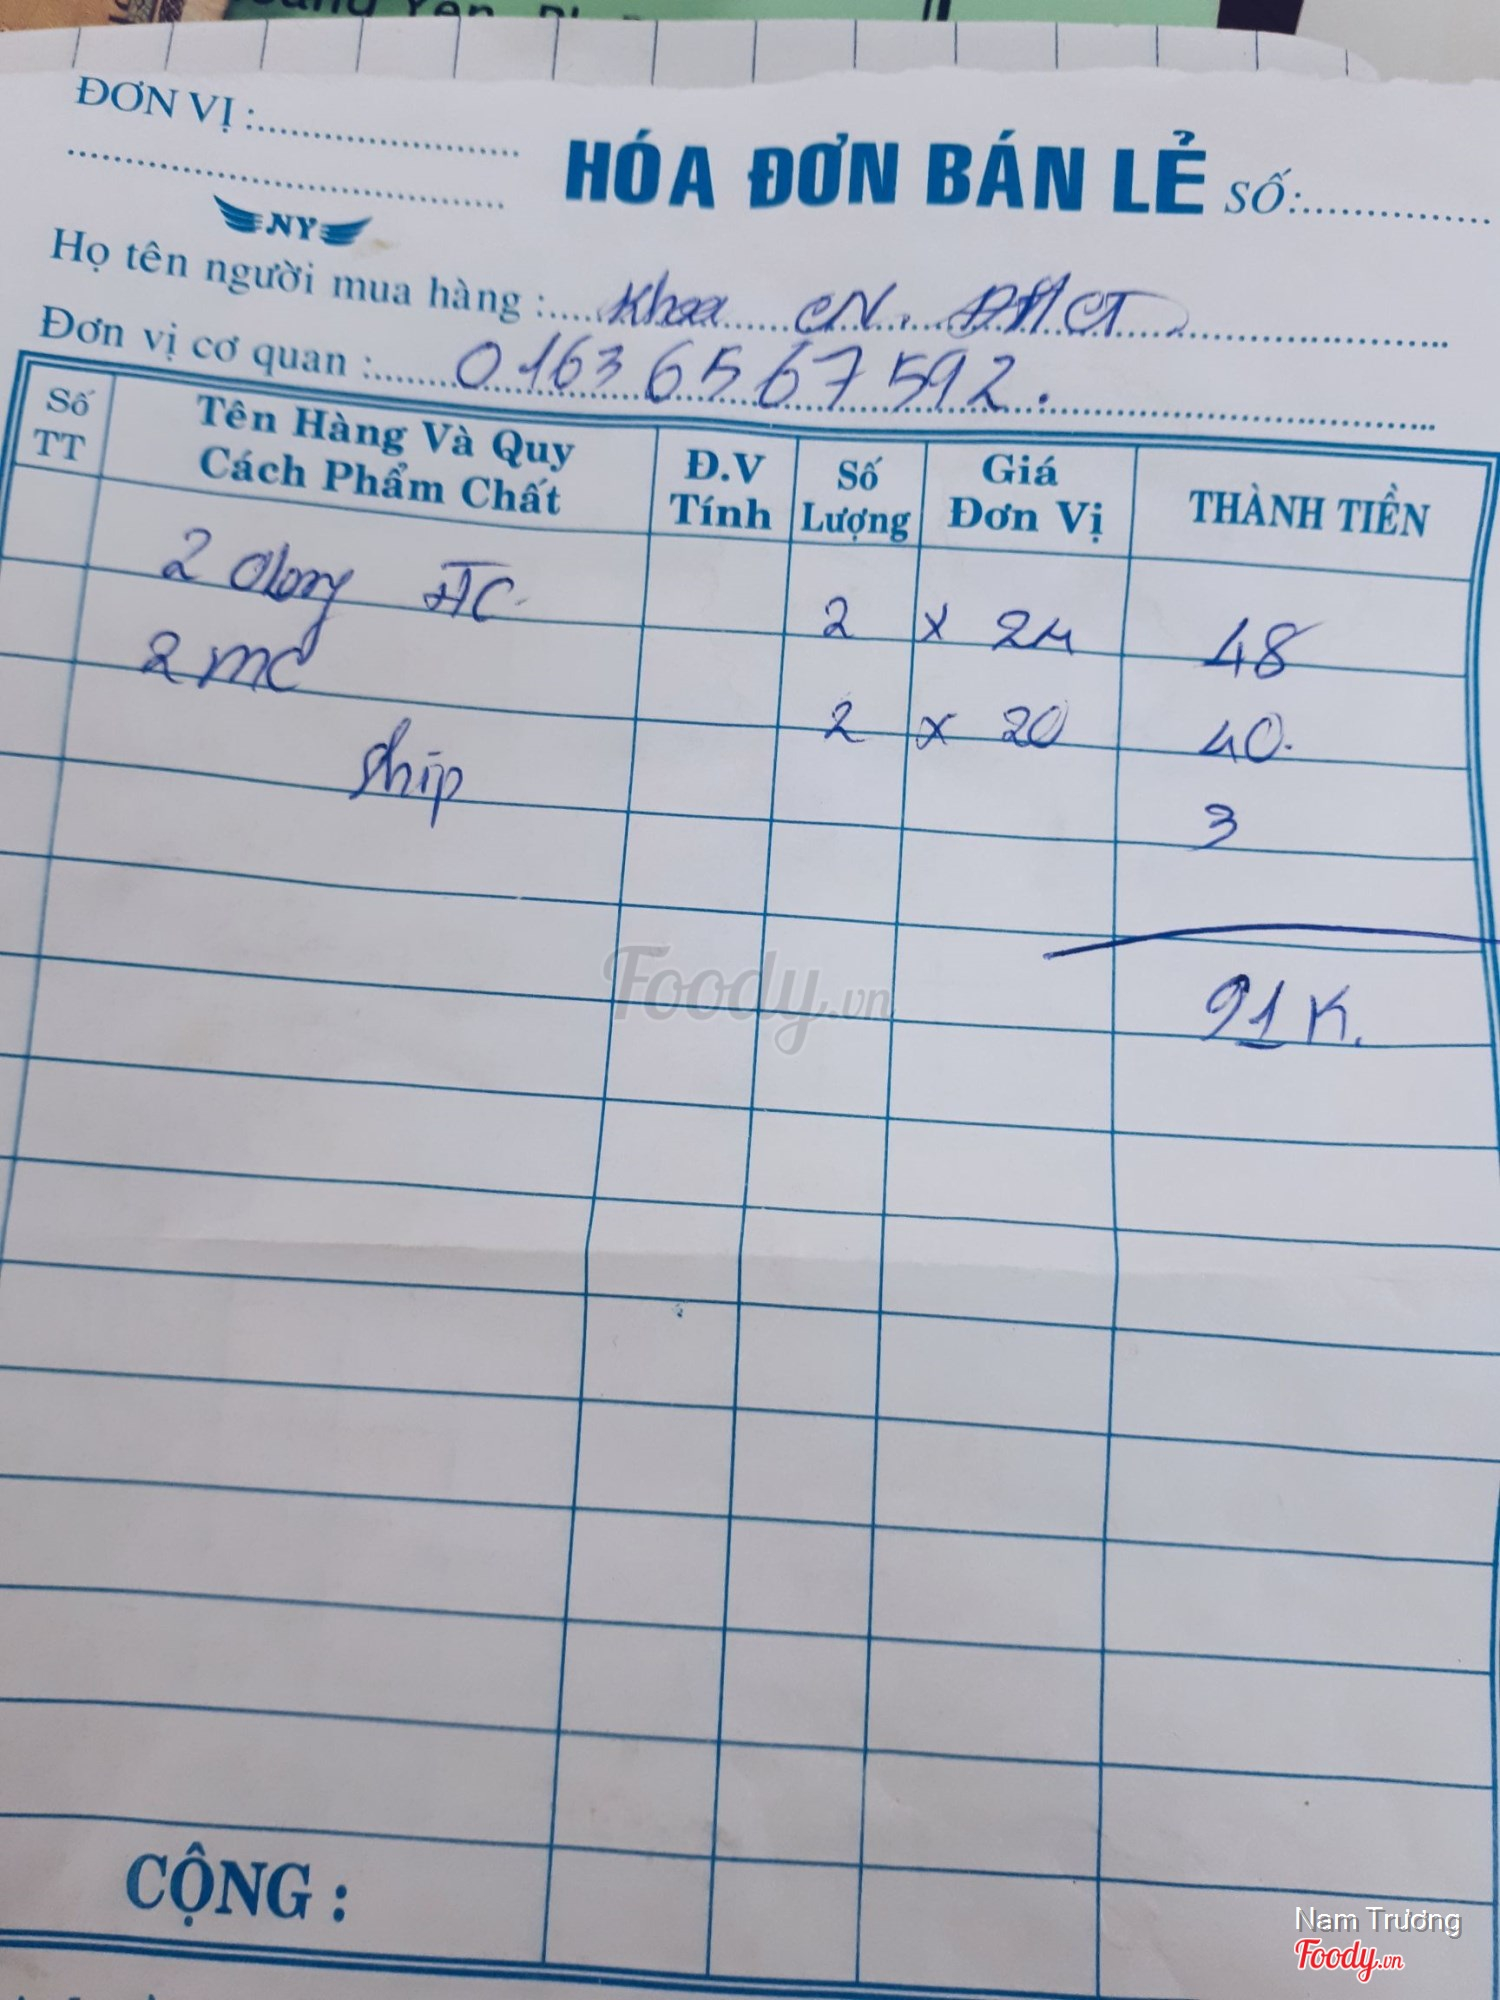 ĐƠN VỊ :
HÓA ĐƠN BÁN LẺ SỐ:
NY
Họ tên người mua hàng : Khoa CN. ĐHCT
Đơn vị cơ quan : 01636567592.
Số TT Tên Hàng Và Quy Cách Phẩm Chất Đ.V Tính Số Lượng Giá Đơn Vị THÀNH TIỀN
2 olong TC. 2 x 24 48
2 mc 2 x 20 40.
ship 3
91K.
Foody.vn
CỘNG :
Nam Trương
Foody.vn